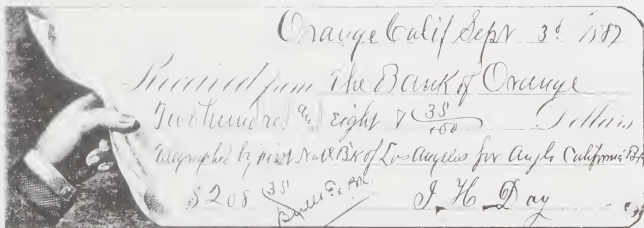 Orange Calif Sept 3d 1887
Received from The Bank of Orange
Two hundred and eight & 35/100 Dollars
Telegraphed by First Natl Bk of Los Angeles for Anglo California Bk
$208 35 J. H. Day